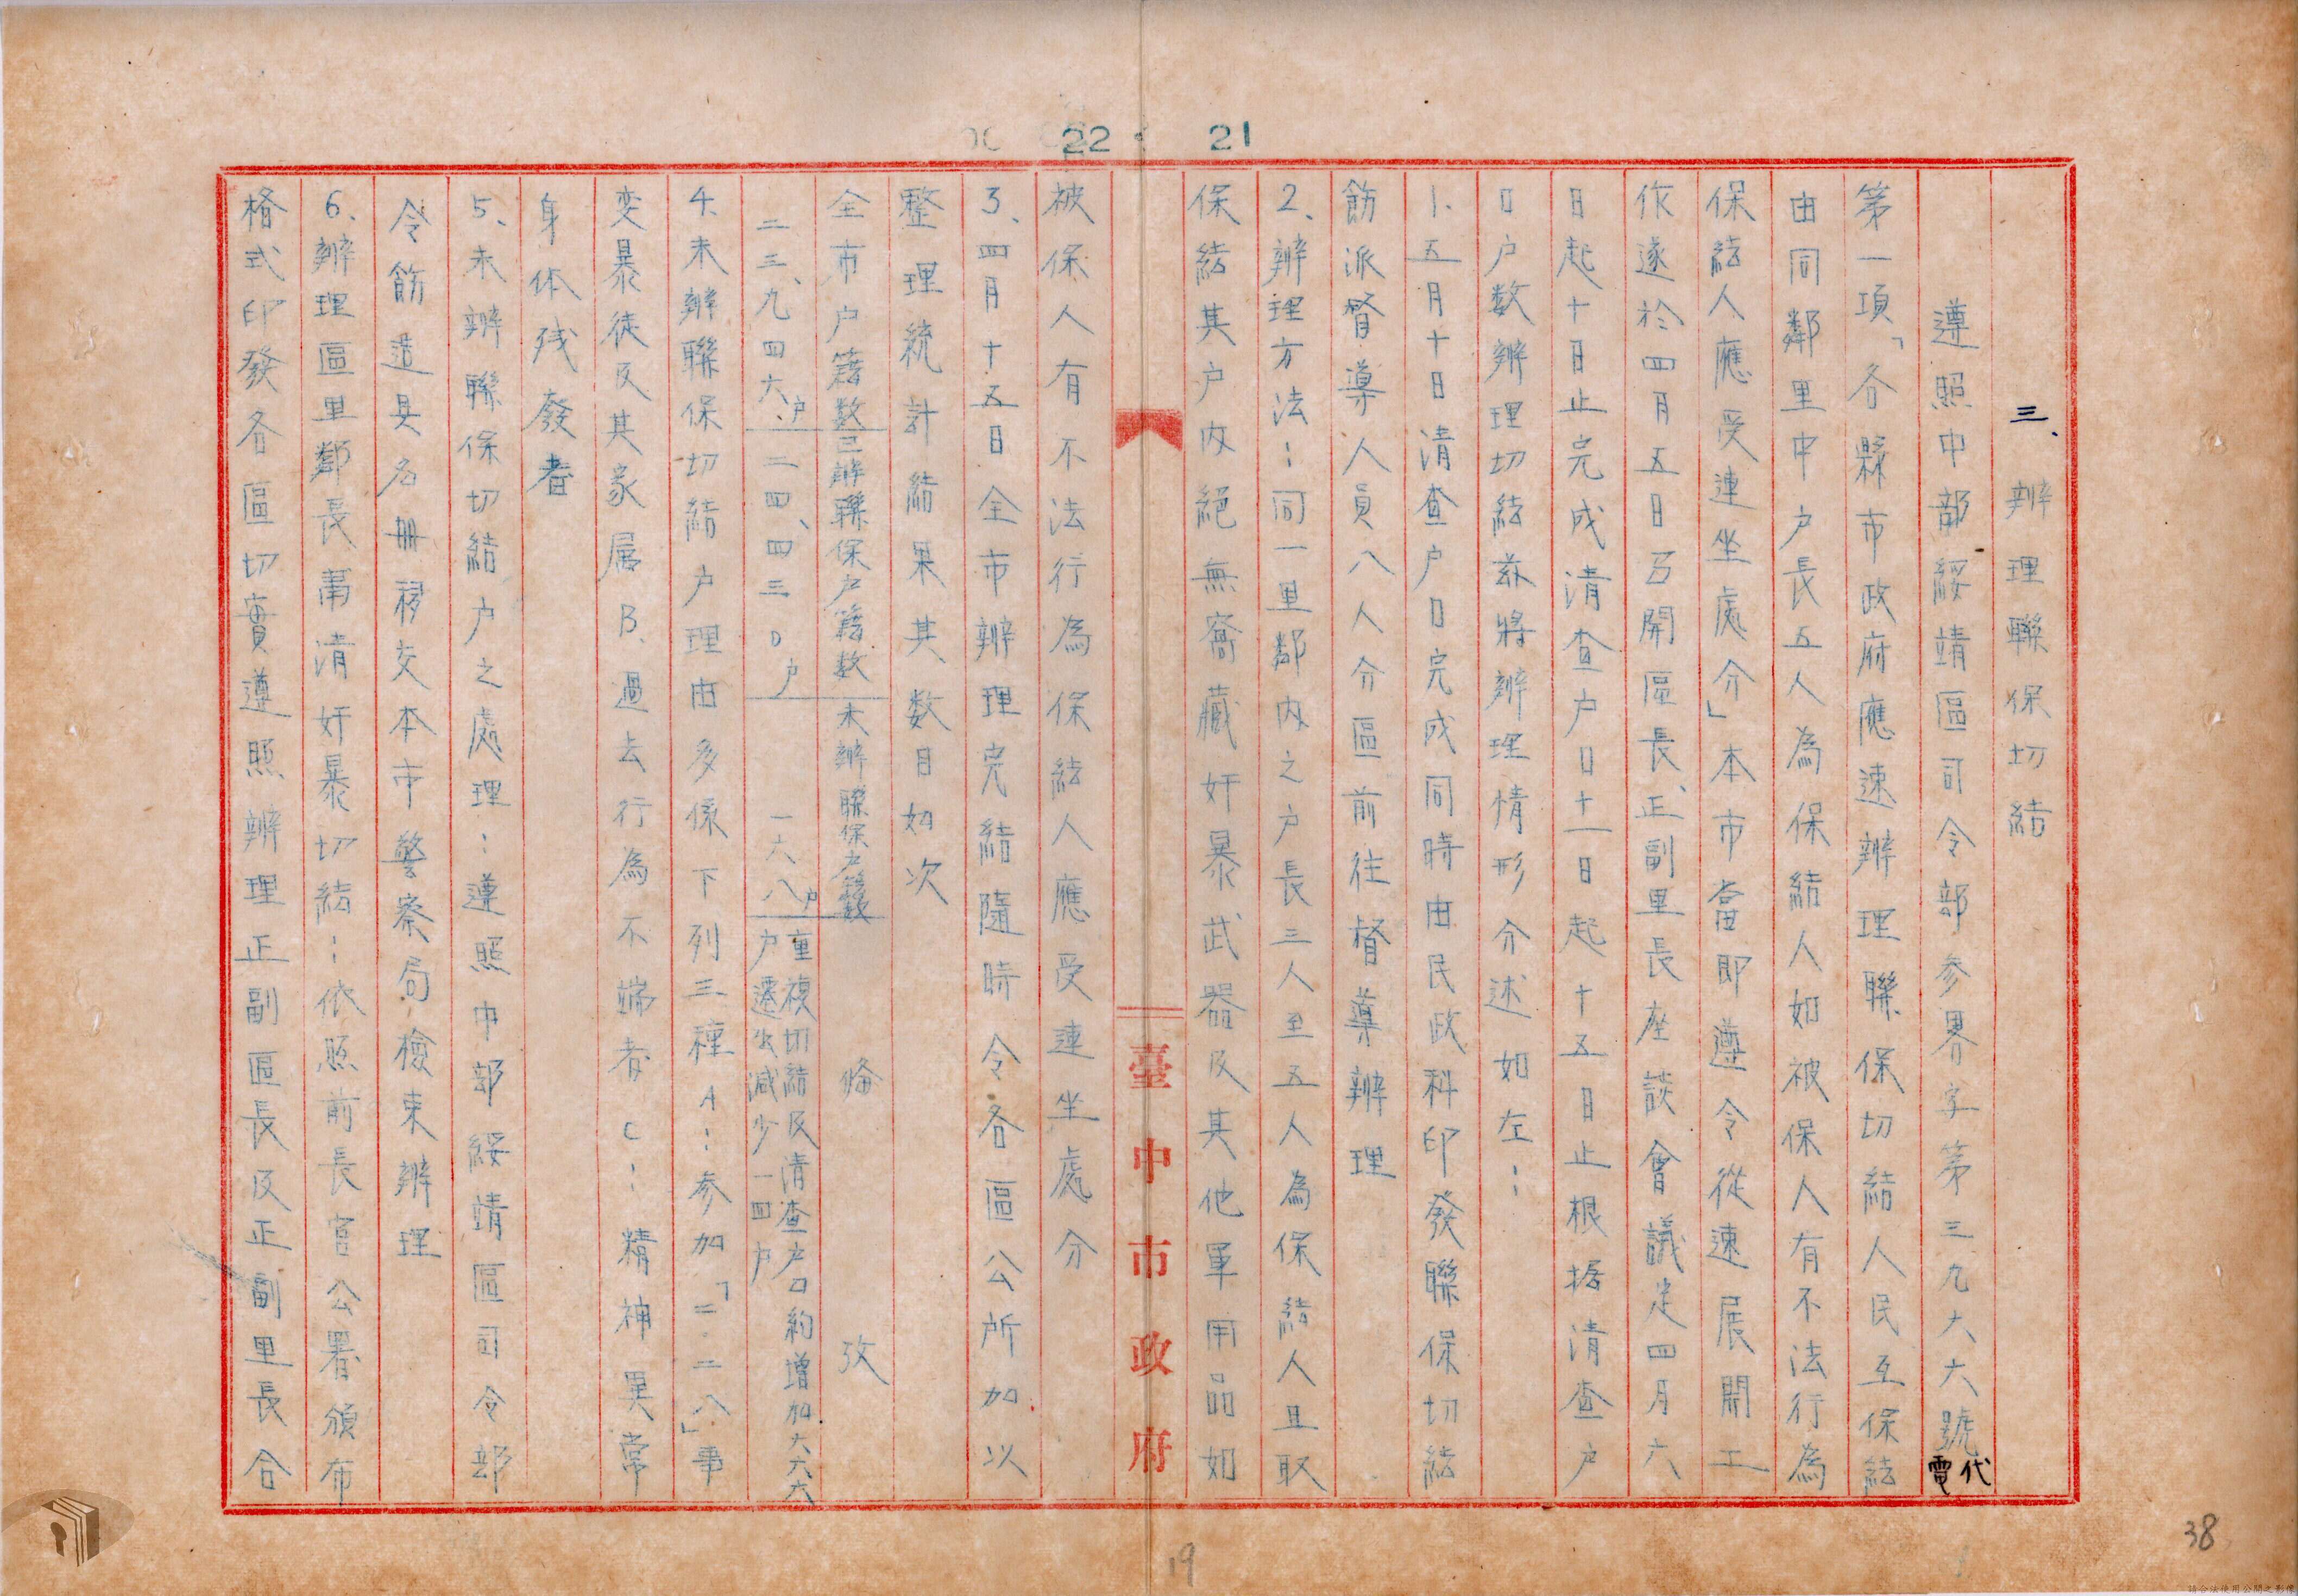 22 21
三、辦理聯保切結
遵照中部綏靖區司令部参畧字第三九六六號代電
第一項「各縣市政府應速辦理聯保切結人民互保結
由同鄰里中户長五人為保結人如被保人有不法行為
保結人應受連坐處分」本市當即遵令從速展開工
作遂於四月五日召開區長、正副里長座談會議定四月六
日起十日止完成清查户口十一日起十五日止根据清查户
口户数辦理切結茲將辦理情形分述如左：
1.五月十日清查户口完成同時由民政科印發聯保切結
飭派督導人員八人分區前往督導辦理
2、辦理方法：同一里鄰内之户長三人至五人為保結人且取
保結其户内絕無窩藏奸暴武器及其他軍用品如
臺中市政府
被保人有不法行為保結人應受連坐處分
3、四月十五日全市辦理完結隨時令各區公所加以
整理統計結果其数目如次
全市户籍数 已辦聯保户籍数 未辦聯保户籍数 備攷
二三、九四六户 二四、四三０户 一六八户 重複切結及清查户口約增加六六六
户遷出減少一四户
4、未辦聯保切結户理由多係下列三種A：参加「二.二八」事
变暴徒及其家屬B、過去行為不端者C：精神異常
身体残廢者
5、未辦聯保切結户之處理：遵照中部綏靖區司令部
令飭造具名冊移交本市警察局檢束辦理
6、辦理區里鄰長肅清奸暴切結：依照前長官公署頒布
格式印發各區切實遵照辦理正副區長及正副里長合
19
38